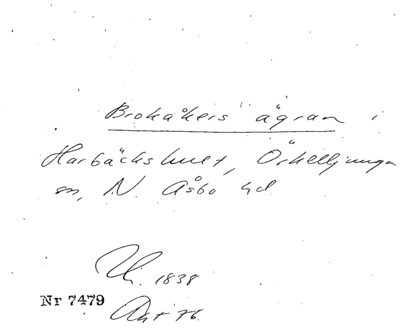 Brokåkers ägran i
Harbäckshult, Örkelljunga
sn, N. Åsbo hd
Th. 1838
Nr 7479
Akt 76.